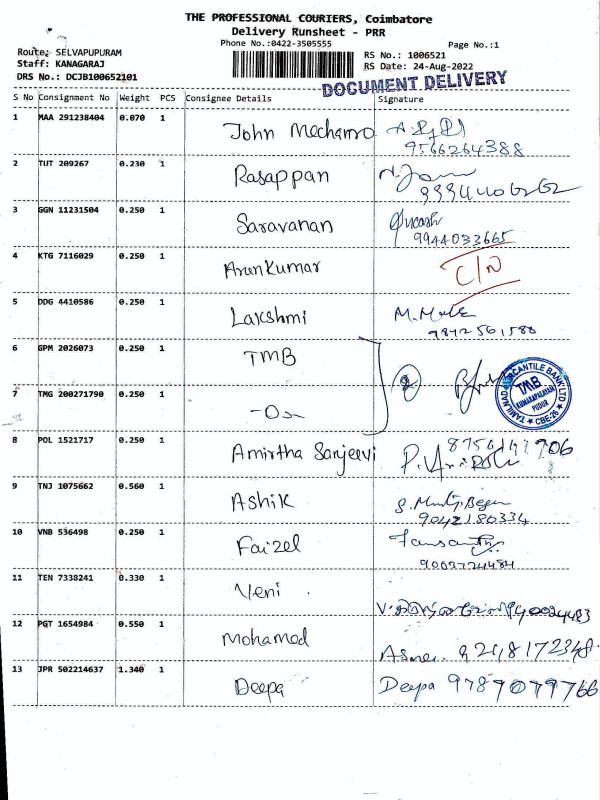 THE PROFESSIONAL COURIERS, Coimbatore
Delivery Runsheet - PRR
Phone No.:0422-3505555
Page No.:1
Route: SELVAPUPURAM
Staff: KANAGARAJ
DRS No.: DCJB100652101
RS No.: 1006521
RS Date: 24-Aug-2022
DOCUMENT DELIVERY
S No Consignment No Weight PCS Consignee Details Signature
1 MAA 291238404 0.070 1 John Mechamro
9566264388
2 TUT 209267 0.230 1 Rasappan
3 GGN 11231504 0.250 1 Saravanan
9944033665
4 KTG 7116029 0.250 1 ArunKumar C/N
5 DDG 4410586 0.250 1 Lakshmi M.Male
9842561588
6 GPM 2026073 0.250 1 TMB
TAMILNAD MERCANTILE BANK LTD
TMB
KUMARAPALAYAM
PUDUR
CBE-26
7 TMG 200271790 0.250 1 -Do-
8 POL 1521717 0.250 1 Amirtha Sanjeevi
9 TNJ 1075662 0.560 1 Ashik
9042180334
10 VNB 536498 0.250 1 Faizel
9003724484
11 TEN 7338241 0.330 1 Veni
12 PGT 1654984 0.550 1 Mohamed
13 JPR 502214637 1.340 1 Deepa Deepa 9789079766